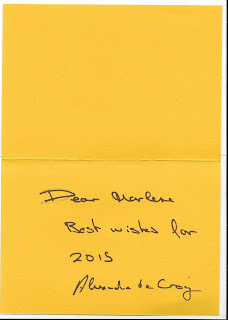 Dear Marlene
Best wishes for
2015
Alexandra de Craig